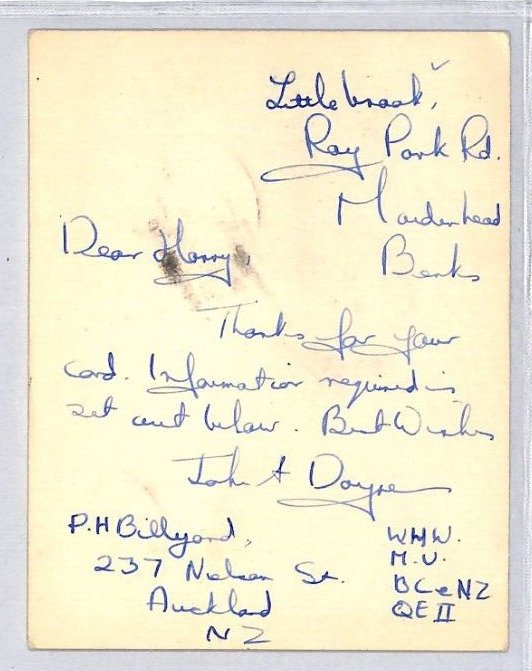 Littlebrook,
Ray Park Rd.
Maidenhead
Berks
Dear Harry,
Thanks for your
card. Information required is
set out below. Best Wishes
John A
P.H Billyard,
237 Nelson St.
Auckland
NZ
WHW.
M.U.
BC & NZ
QE II